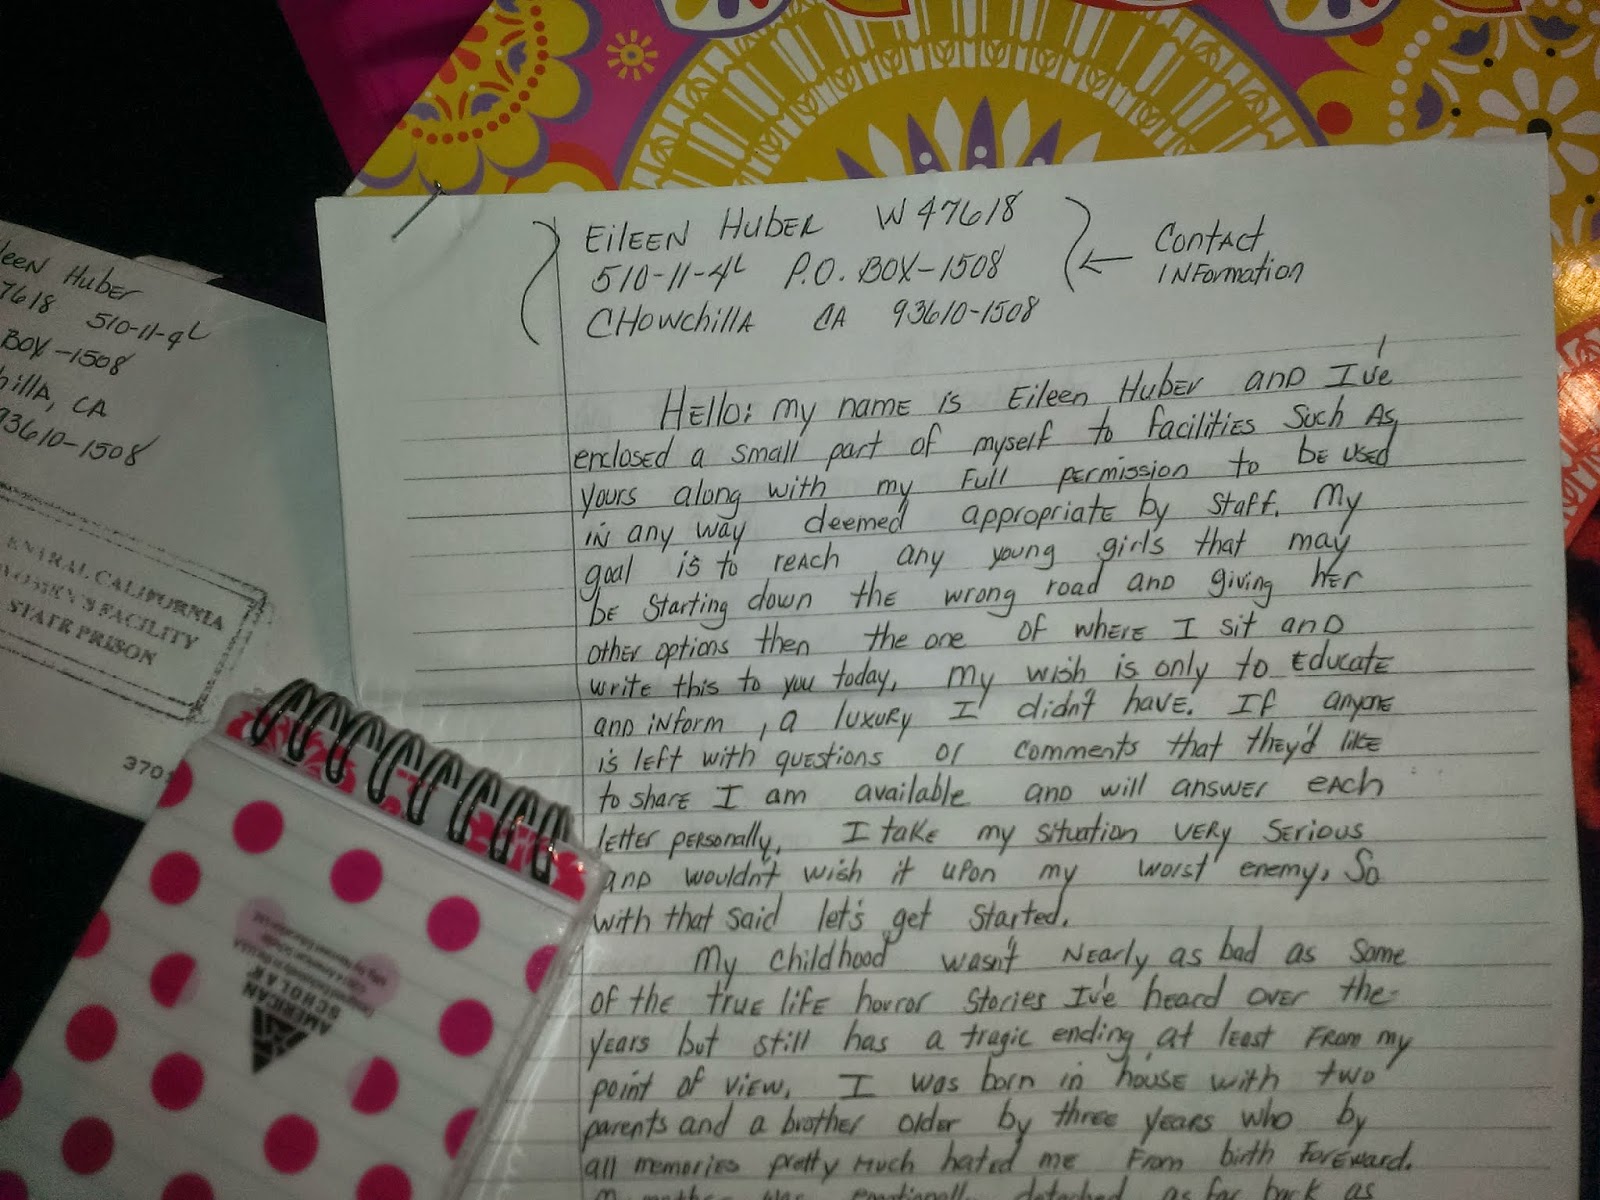 EilEEN HubER W47618
510-11-4L P.O. BOX-1508
CHowchillA CA 93610-1508
ContAct
INFormation
Hello: my name is Eileen Huber and I've
enclosed a small part of myself to facilities Such As
yours along with my Full permission to be used
in any way deemed appropriate by staff. My
goal is to reach any young girls that may
be starting down the wrong road and giving her
other options then the one of where I sit and
write this to you today, my wish is only to educate
and inform, a luxury I didn't have. If anyone
is left with questions or comments that they'd like
to share I am available and will answer each
letter personally. I take my situation very serious
and wouldn't wish it upon my worst enemy, So
with that said let's get started.
My childhood wasn't nearly as bad as some
of the true life horror stories I've heard over the
years but still has a tragic ending at least from my
point of view. I was born in house with two
parents and a brother older by three years who by
all memories pretty much hated me from birth foreward.
My mother was emotionally detached as far back as
Huber
7618 510-11-4L
BOX-1508
hillA, CA
93610-1508
ENTRAL CALIFORNIA
WOMEN'S FACILITY
STATE PRISON
3701
AMERICAN
SCHOLAR